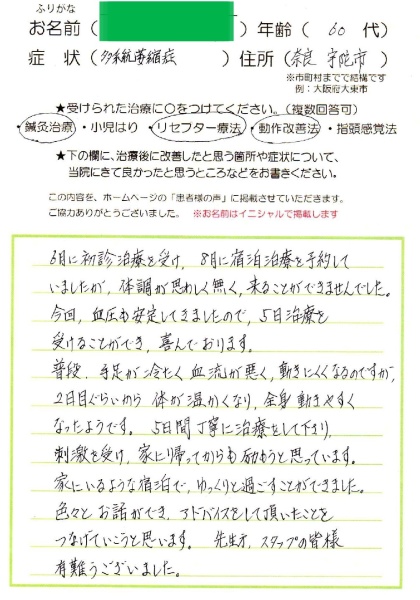 ふりがな
お名前（　　　）年齢（60代）
症　状（多系統萎縮症）住所（奈良 宇陀市）
※市町村までで結構です
例：大阪府大東市
★受けられた治療に○をつけてください。（複数回答可）
・鍼灸治療・小児はり・リセプター療法・動作改善法・指頭感覚法
★下の欄に、治療後に改善したと思う箇所や症状について、
当院にきて良かったと思うところなどをお書きください。
この内容を、ホームページの「患者様の声」に掲載させていただきます。
ご協力ありがとうございました。　※お名前はイニシャルで掲載します
6月に初診治療を受け，8月に宿泊治療を予約して
いましたが，体調が思わしく無く，来ることができませんでした。
今回，血圧も安定してきましたので，5日治療を
受けることができ，喜んでおります。
普段，手足が冷たく血流が悪く，動きにくくなるのですが，
2日目ぐらいから体が温かくなり，全身動きやすく
なったようです。5日間丁寧に治療をして下さり，
刺激を受け，家に帰ってからも励もうと思っています。
家にいるような宿泊で，ゆっくりと過ごすことができました。
色々とお話ができ，アドバイスをして頂いたことを
つなげていこうと思います。先生方，スタッフの皆様
有難うございました。